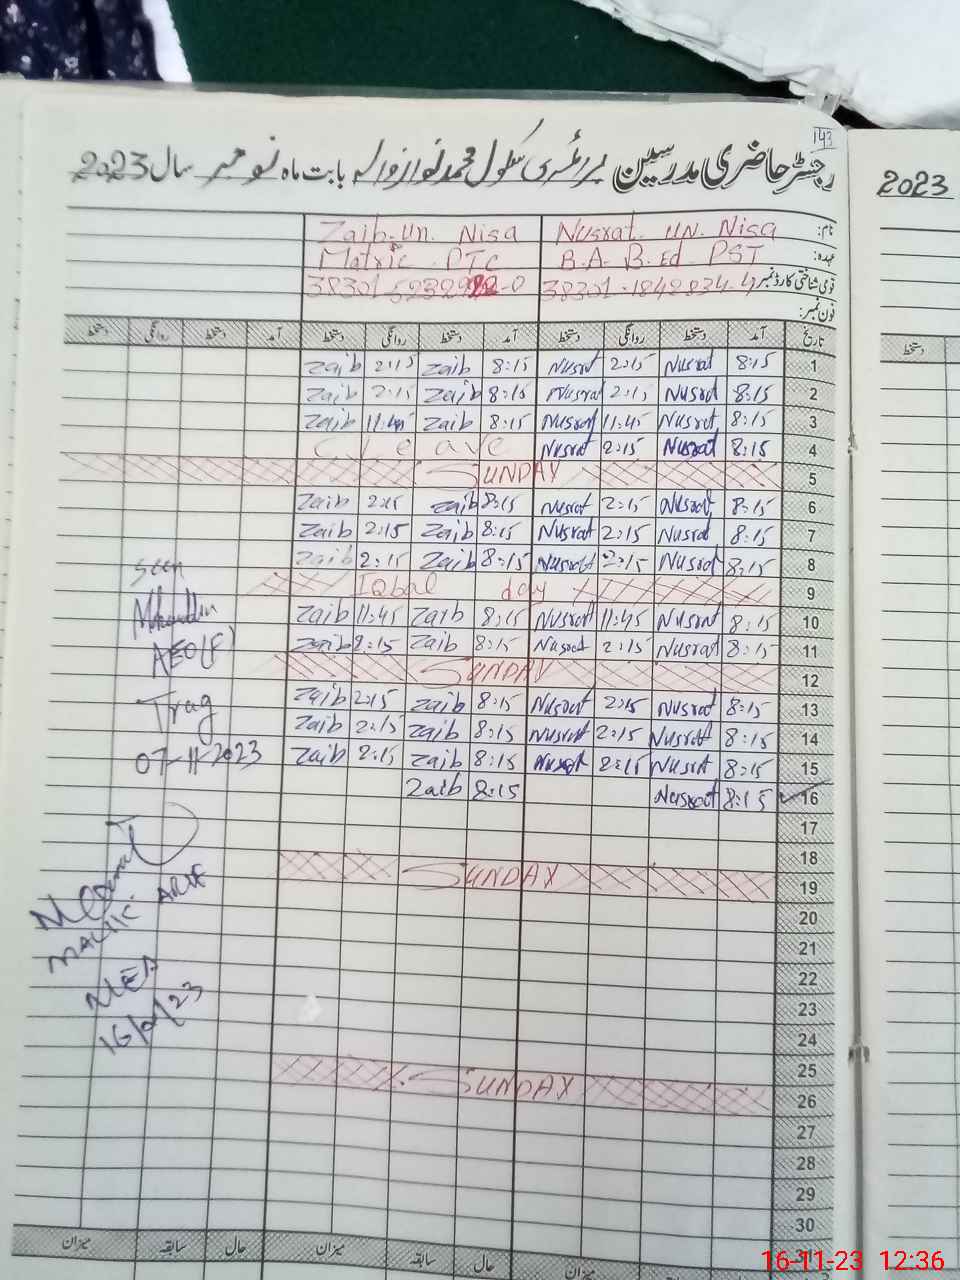 143
رجسٹر حاضری مدرسین پرائمری سکول محمد نواز والہ بابت ماہ نومبر سال 2023
2023
نام: Nusrat un Nisa Zaib-un. Nisa
عہدہ: B.A. B.Ed PST Matric PTC
قومی شناختی کارڈ نمبر 38301-1842834-4
فون نمبر:
تاریخ آمد دستخط روانگی دستخط آمد دستخط روانگی دستخط آمد دستخط روانگی دستخط
دستخط
1 8:15 Nusrat 2:15 Nusrat 8:15 Zaib 2:15 Zaib
2 8:15 Nusrat 2:15 Nusrat 8:15 Zaib 2:15 Zaib
3 8:15 Nusrat 11:45 Nusrat 8:15 Zaib 11:45 Zaib
4 8:15 Nusrat 2:15 Nusrat C Leave
5 SUNDAY
6 8:15 Nusrat 2:15 Nusrat 8:15 Zaib 2:15 Zaib
7 8:15 Nusrat 2:15 Nusrat 8:15 Zaib 2:15 Zaib
8 8:15 Nusrat 2:15 Nusrat 8:15 Zaib 2:15 Zaib
9 Iqbal day
10 8:15 Nusrat 11:45 Nusrat 8:15 Zaib 11:45 Zaib
11 8:15 Nusrat 2:15 Nusrat 8:15 Zaib 2:15 Zaib
12 SUNDAY
13 8:15 Nusrat 2:15 Nusrat 8:15 Zaib 2:15 Zaib
14 8:15 Nusrat 2:15 Nusrat 8:15 Zaib 2:15 Zaib
15 8:15 Nusrat 2:15 Nusrat 8:15 Zaib 2:15 Zaib
16 8:15 Nusrat 8:15 Zaib
17
18
19 SUNDAY
20
21
22
23
24
25
26 SUNDAY
27
28
29
30
31
Seen
AEO(F)
Trag
07-11-2023
MEA
میزان حال سابقہ میزان حال سابقہ میزان
16-11-23 12:36